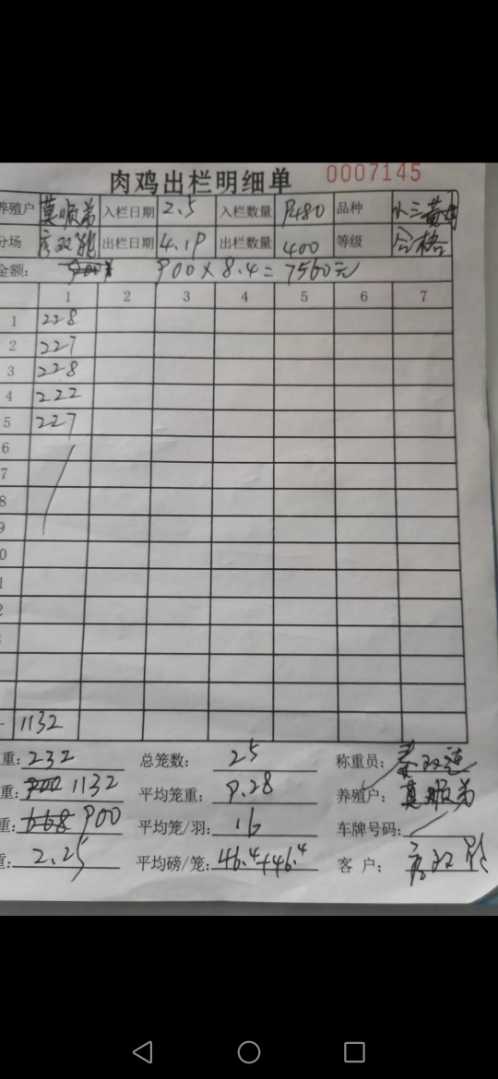 肉鸡出栏明细单 0007145
养殖户 莫顺弟 入栏日期 2.5 入栏数量 9480 品种 水三黄
分场 出栏日期 4.19 出栏数量 400 等级 合格
金额: 900×8.4=7560元
1 2 3 4 5 6 7
1 228
2 227
3 228
4 222
5 227
6
7
8
9
0
1
2
1132
重: 232 总笼数: 25 称重员:
重: 1132 平均笼重: 9.28 养殖户: 莫顺弟
重: 668 900 平均笼/羽: 16 车牌号码:
重: 2.25 平均磅/笼: 46.4+46.4 客户: